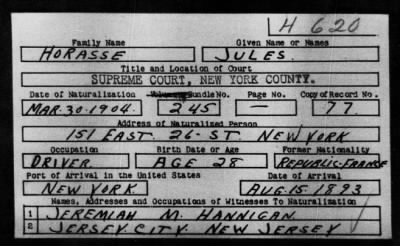 H 620
Family Name Given Name or Names
HORASSE JULES.
Title and Location of Court
SUPREME COURT, NEW YORK COUNTY.
Date of Naturalization Bundle No. Page No. Copy of Record No.
MAR. 30. 1904. 245 — 77
Address of Naturalized Person
151 EAST. 26-ST. NEW YORK
Occupation Birth Date or Age Former Nationality
DRIVER AGE 28 REPUBLIC-FRANCE
Port of Arrival in the United States Date of Arrival
NEW YORK AUG. 15. 1893
Names, Addresses and Occupations of Witnesses To Naturalization
1 JEREMIAH M. HANNIGAN.
2 JERSEY CITY NEW JERSEY